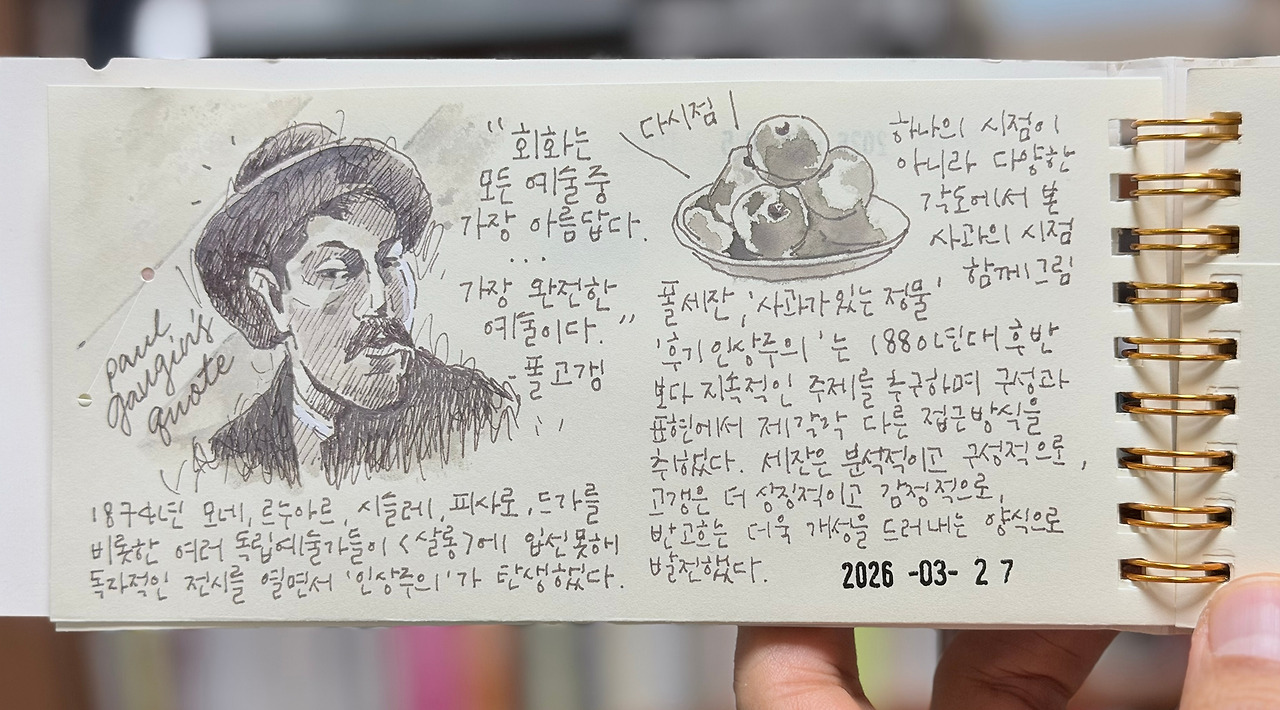 paul
gaugin's
quote
"회화는
모든 예술중
가장 아름답다.
...
가장 완전한
예술이다."
-폴고갱
1874년 모네, 르누아르, 시슬레, 피사로, 드가를
비롯한 여러 독립예술가들이 <살롱>에 입선 못해
독자적인 전시를 열면서 '인상주의'가 탄생했다.
다시점
하나의 시점이
아니라 다양한
각도에서 본
사과의 시점
함께그림
폴세잔, '사과가 있는 정물'
'후기인상주의'는 1880년대 후반
보다 지속적인 주제를 추구하며 구성과
표현에서 제각각 다른 접근방식을
취했다. 세잔은 분석적이고 구성적으로,
고갱은 더 상징적이고 감정적으로,
반고흐는 더욱 개성을 드러내는 양식으로
발전했다.
2026 -03- 27